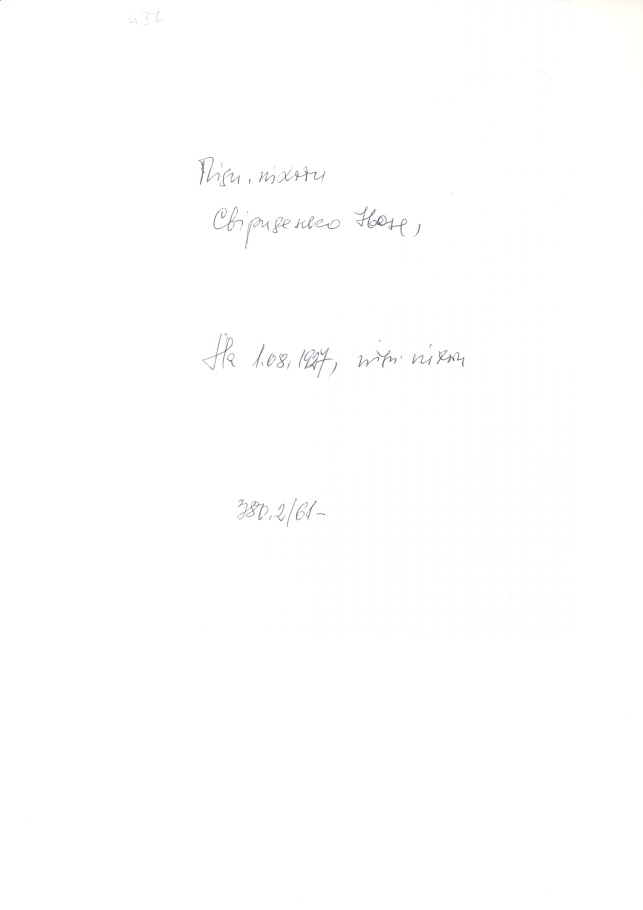 437
Підп. піхоти
Свіриденко
На 1.08.1927, підп. піхоти
380.2/61-